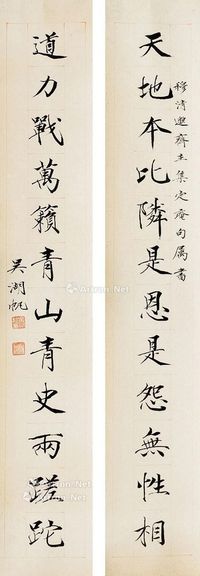 天地本比隣是恩是怨無性相
穆清邀齋主集定盦句属書
道力戰萬籟青山青史兩蹉跎
吳湖帆